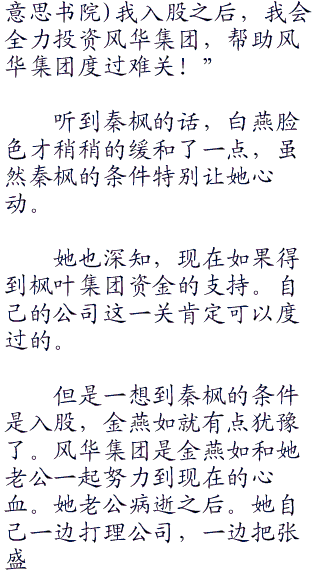 意思书院)我入股之后，我会
全力投资风华集团，帮助风
华集团度过难关！”
听到秦枫的话，白燕脸
色才稍稍的缓和了一点，虽
然秦枫的条件特别让她心
动。
她也深知，现在如果得
到枫叶集团资金的支持。自
己的公司这一关肯定可以度
过的。
但是一想到秦枫的条件
是入股，金燕如就有点犹豫
了。风华集团是金燕如和她
老公一起努力到现在的心
血。她老公病逝之后。她自
己一边打理公司，一边把张
盛